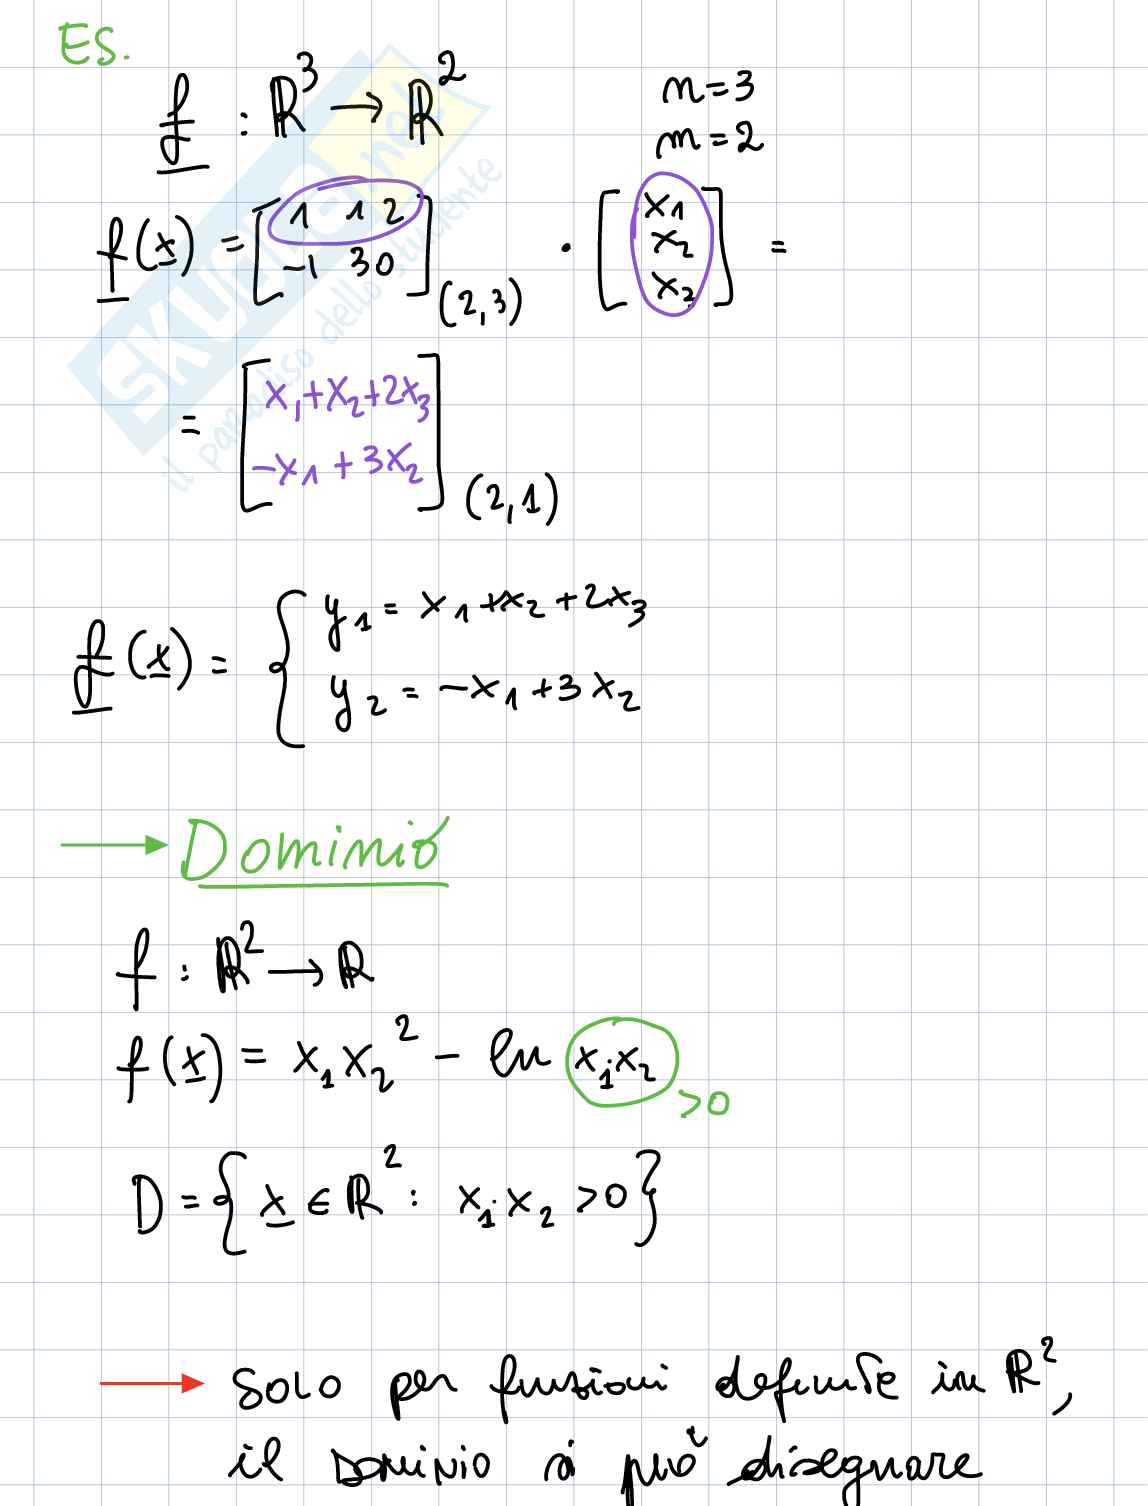 ES.
f : ℝ³ → ℝ² n=3
m=2
f(x) = [1 1 2
-1 3 0](2,3) · [x₁
x₂
x₃] =
= [x₁+x₂+2x₃
-x₁+3x₂](2,1)
f(x) = { y₁ = x₁+x₂+2x₃
y₂ = -x₁+3x₂
→ Dominio
f : ℝ² → ℝ
f(x) = x₁x₂² - ln x₁·x₂ >0
D = { x ∈ ℝ² : x₁·x₂ >0 }
→ SOLO per funzioni definite in ℝ²,
il DOMINIO si può disegnare
SKUOLA.net
il paradiso dello studente